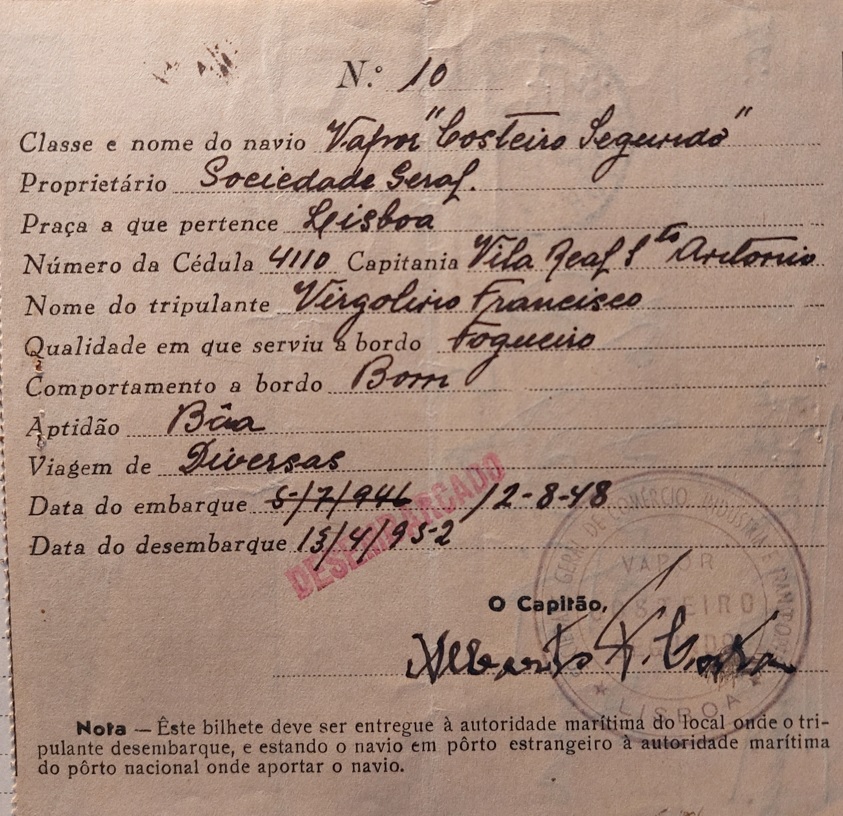 N.º 10
Classe e nome do navio Vapor "Costeiro Segundo"
Proprietário Sociedade Geral.
Praça a que pertence Lisboa
Número da Cédula 4110 Capitania Vila Real Sto Antonio
Nome do tripulante Virgolino Francisco
Qualidade em que serviu a bordo Fogueiro
Comportamento a bordo Bom
Aptidão Bôa
Viagem de Diversas
Data do embarque 5/7/946 12-8-48
Data do desembarque 15/4/952
DESEMBARCADO
O Capitão,
GERAL DE COMÉRCIO INDÚSTRIA E TRANSPORTES
VAPOR
COSTEIRO
LISBOA
Nota — Êste bilhete deve ser entregue à autoridade marítima do local onde o tri-
pulante desembarque, e estando o navio em pôrto estrangeiro à autoridade marítima
do pôrto nacional onde aportar o navio.